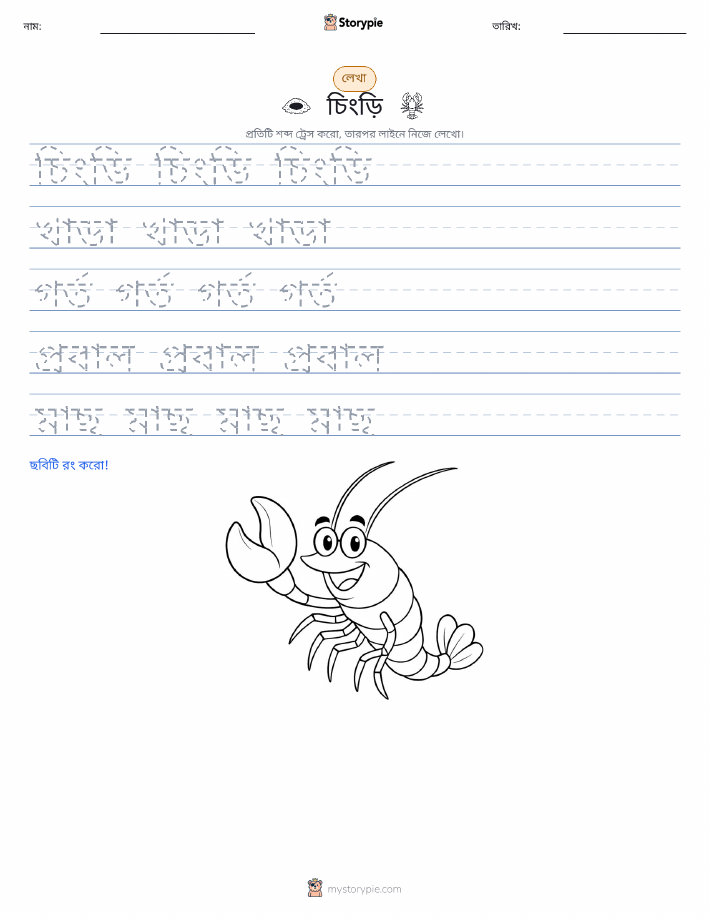 নাম:
Storypie
তারিখ:
লেখা
চিংড়ি
প্রতিটি শব্দ ট্রেস করো, তারপর লাইনে নিজে লেখো।
চিংড়ি চিংড়ি চিংড়ি
খাড়া খাড়া খাড়া
গর্ত গর্ত গর্ত গর্ত
প্রবাল প্রবাল প্রবাল
মাছ মাছ মাছ মাছ
ছবিটি রং করো!
mystorypie.com